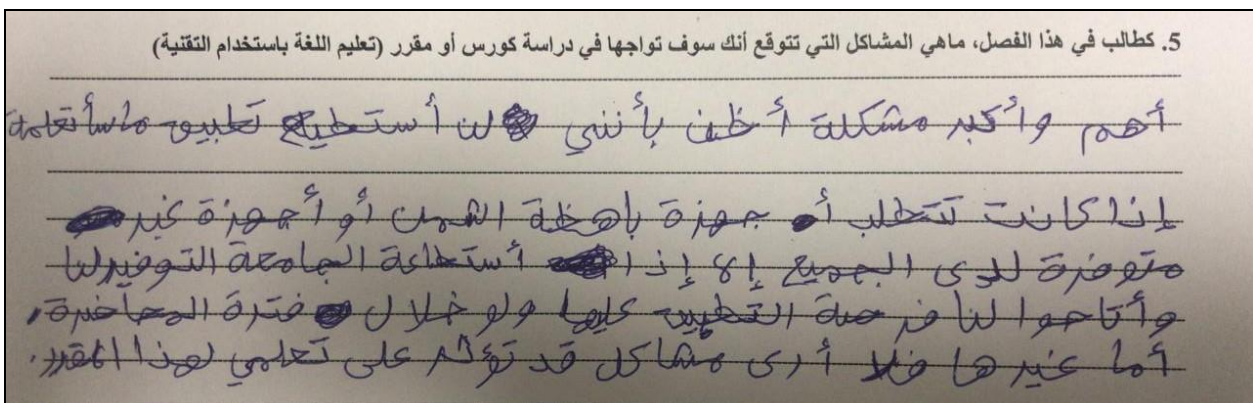 5. كطالب في هذا الفصل، ماهي المشاكل التي تتوقع أنك سوف تواجها في دراسة كورس أو مقرر (تعليم اللغة باستخدام التقنية)
أهم وأكبر مشكلة أظن بأنني لن أستطيع تطبيق ماسأتعلمة
إذا كانت تتطلب أجهزة باهظة الثمن أو أجهزة غير
متوفرة لدى الجميع إلا إذا أستطاعة الجامعة التوفير لنا
وأتاحوا لنا فرصة التطبيق عليها ولو خلال فترة المحاضرة،
أما غيرها فلا أرى مشاكل قد تؤثر على تعلمي لهذا المقرر.